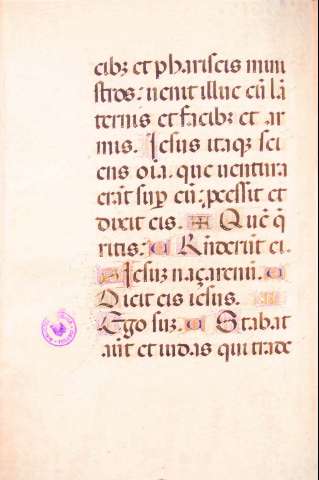 cibꝫ et phariseis mini
stros: uenit illuc cū lā
ternis et facibꝫ et ar
mis. Iesus itaqꝫ sci
ens oīa. que uentura
erāt sup eū; pcessit et
dixit eis. Quē q̄
ritis. Rn̄derūt ei.
Iesuꝫ naçarenū.
Dicit eis iesus.
Ego suꝫ. Stabat
aūt et iudas qui trade